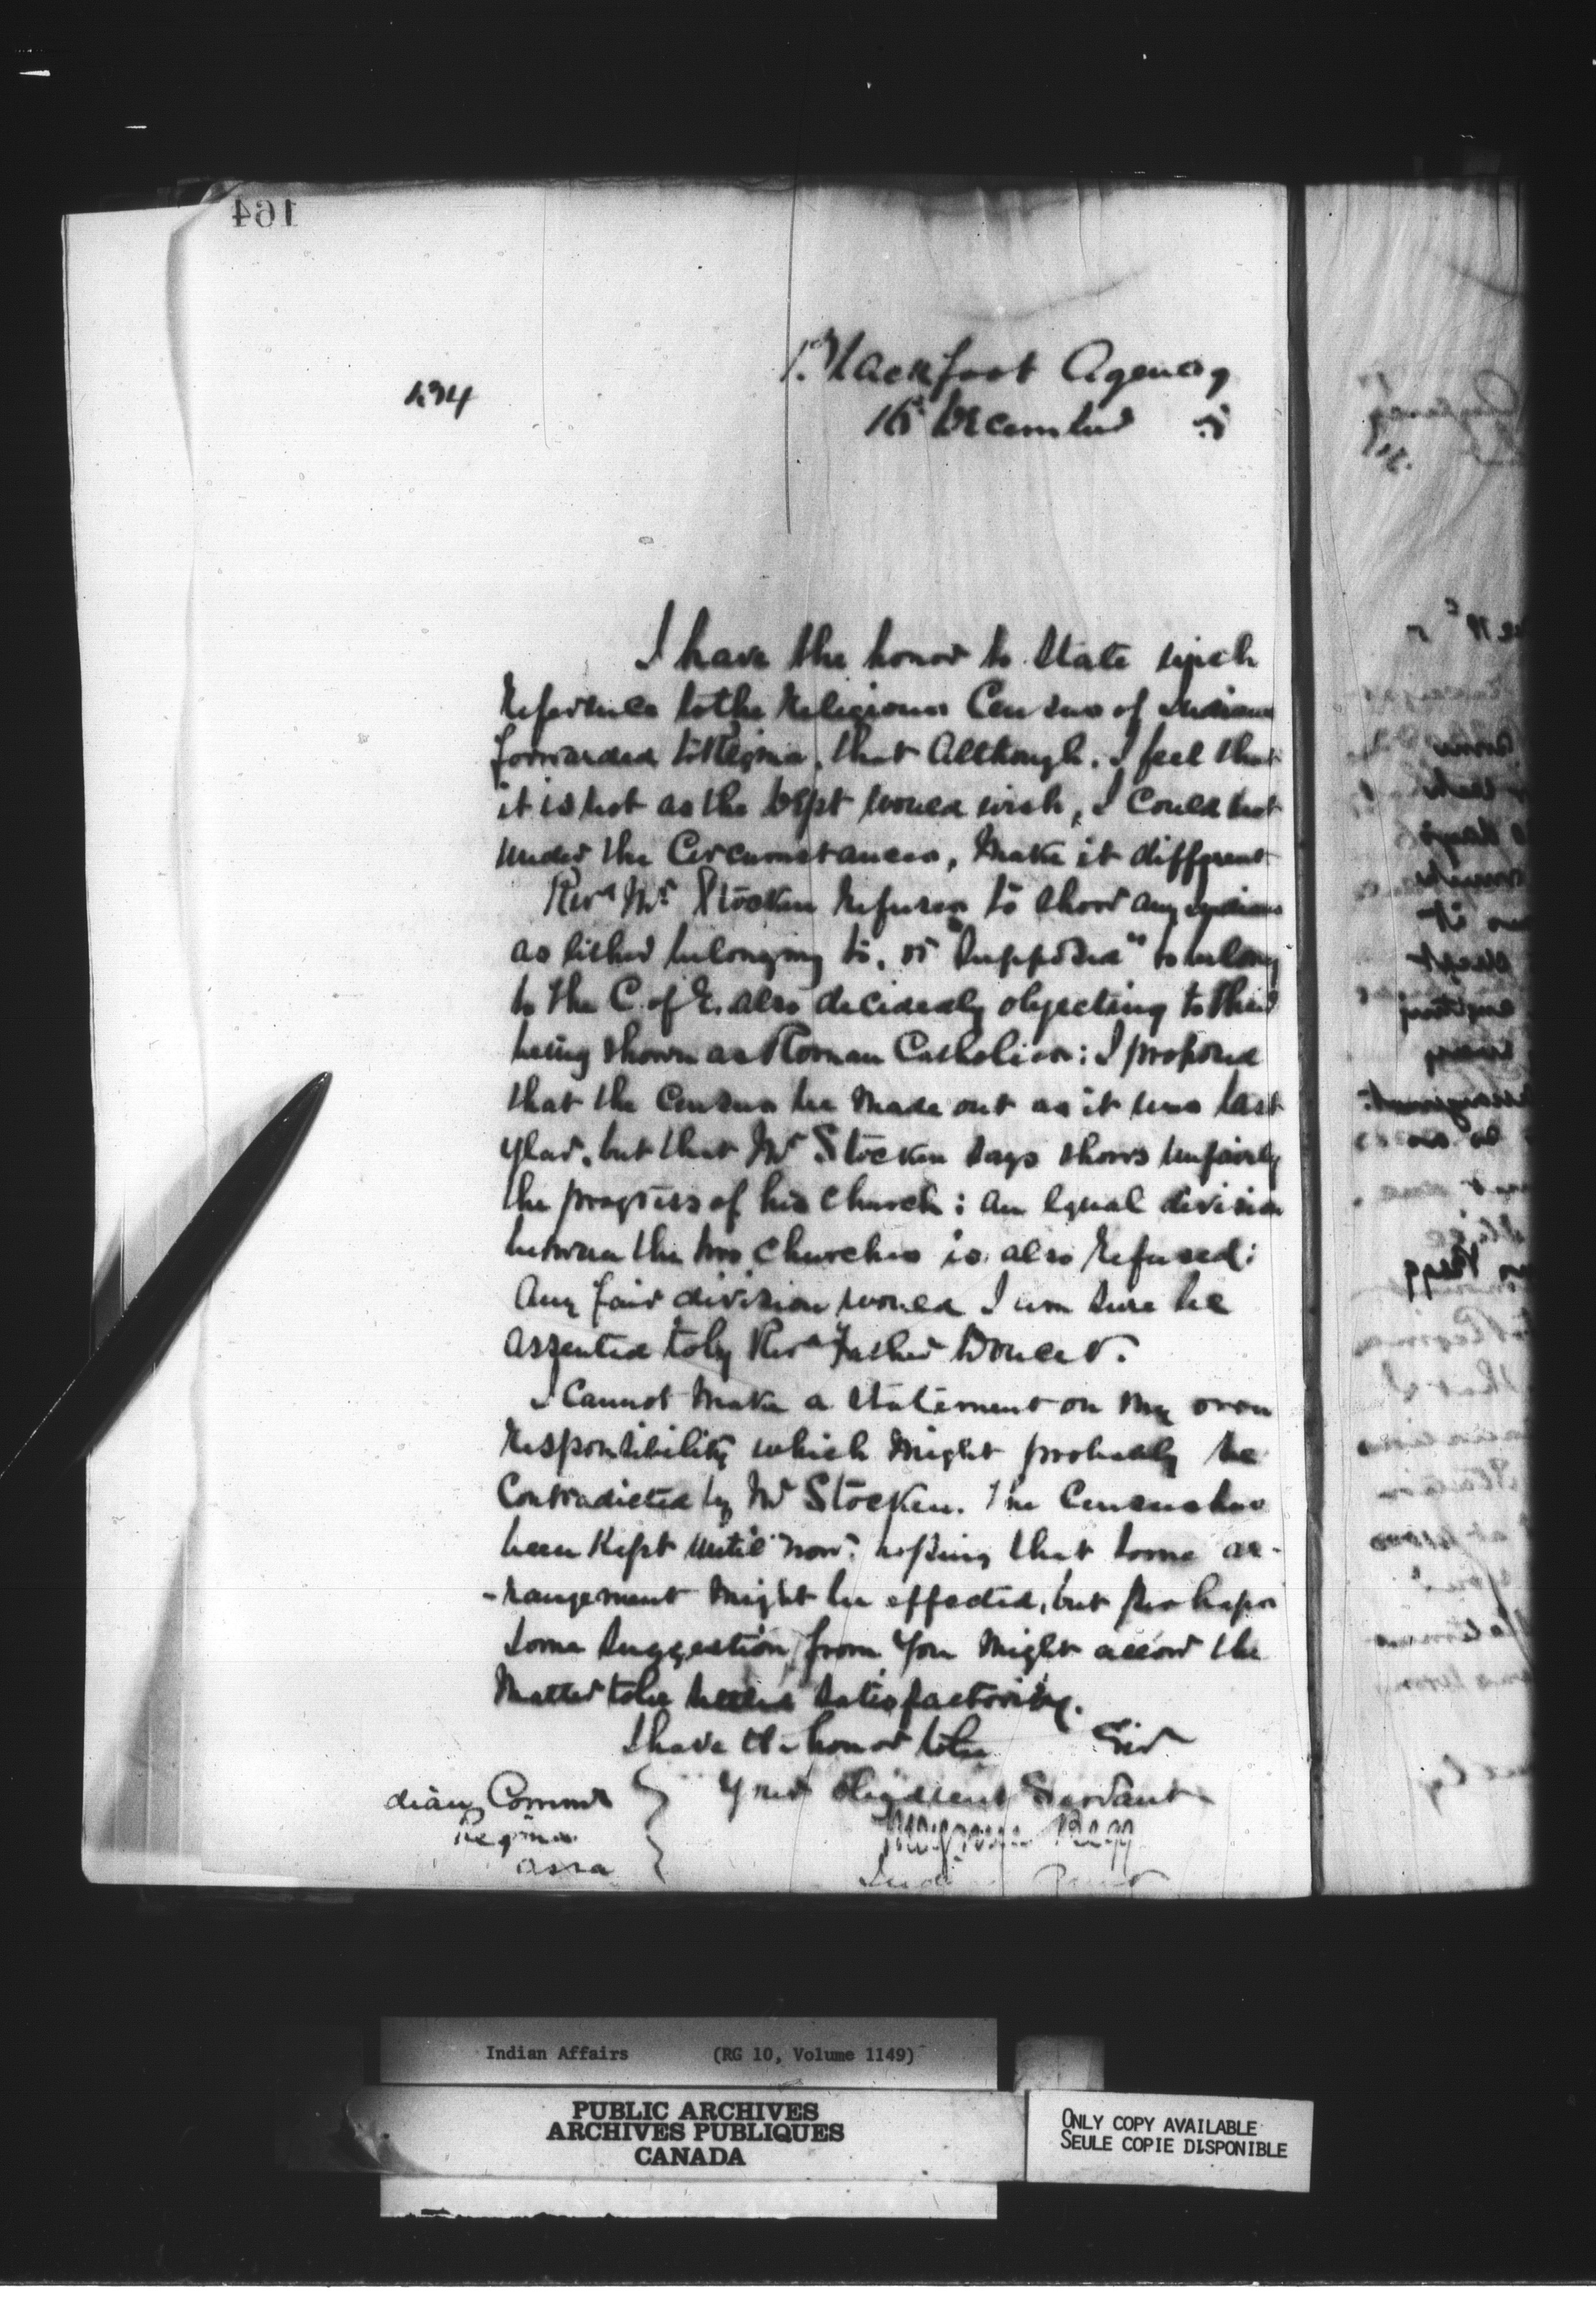 164
Blackfoot Agency
15 December
I have the honor to State with
Reference to the Religious Census of Indians
forwarded to Regina, that Although, I feel that
it is not as the Dept would wish, I could not
under the Circumstances, Make it different
Revd Mr Stocken Refuses to show any Indians
as either belonging to, or "Supposed" to belong
to the C. of E. also decidedly objecting to their
being shown as Roman Catholics: I proposed
that the Census be Made out as it was last
year, but that Mr Stocken says shows unfairly
the progress of his Church: an Equal division
between the two Churches is also Refused:
Any fair division would I am sure be
assented to by Revd Father Doucet.
I Cannot Make a Statement on My own
Responsibility which Might probably be
Contradicted by Mr Stocken. The Census has
been Kept until now: hoping that some ar-
-rangement Might be effected, but perhaps
some suggestion from you Might allow the
Matter to be settled satisfactorily.
I have the honor to be Sir
Your Obedient Servant
dian Commr
Regina
Assa
Magnus Begg
Indian Affairs (RG 10, Volume 1149)
PUBLIC ARCHIVES
ARCHIVES PUBLIQUES
CANADA
ONLY COPY AVAILABLE
SEULE COPIE DISPONIBLE